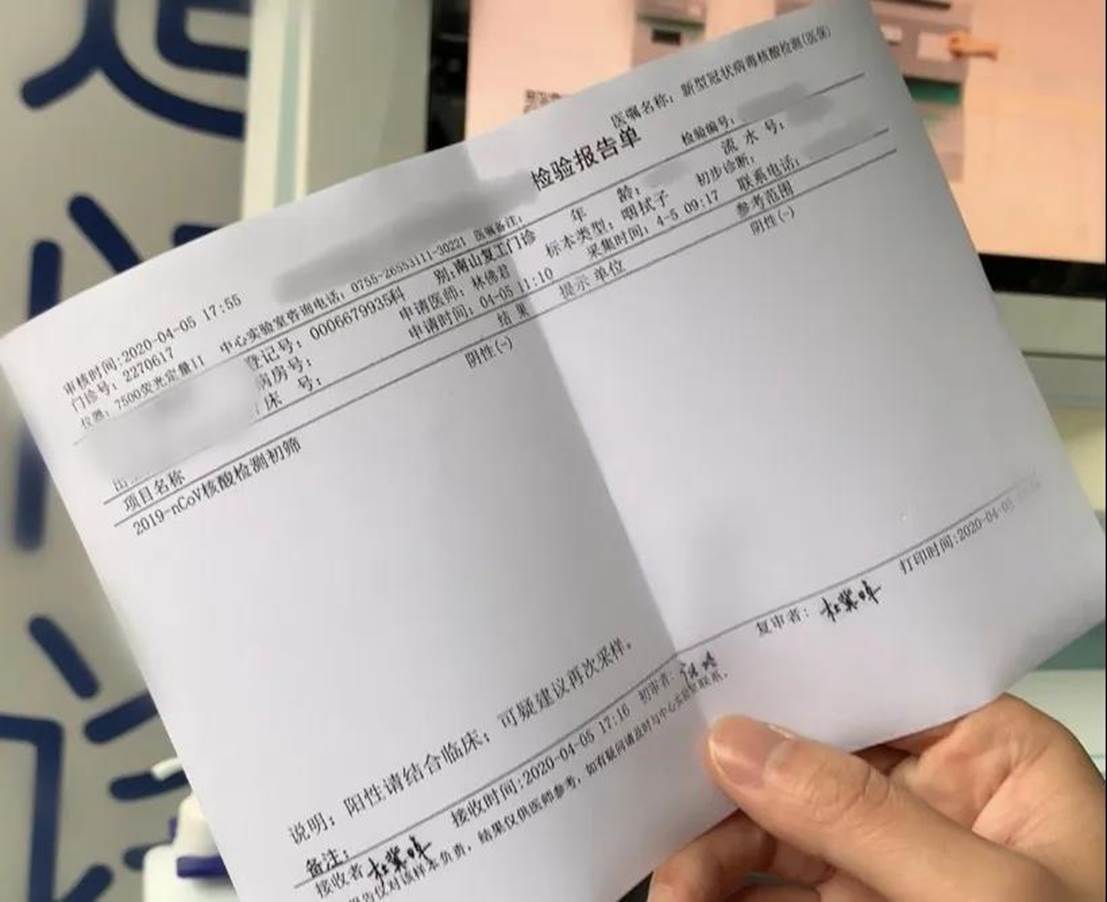 医嘱名称: 新型冠状病毒核酸检测(医保)
检验报告单
检验编号:
审核时间:2020-04-05 17:55
中心实验室咨询电话: 0755-26553111-30221 医嘱备注:
年 龄:
流 水 号:
门诊号: 2270617
登记号: 0006679935科 别:南山复工门诊
标本类型: 咽拭子
初步诊断:
仪器: 7500荧光定量II
病房号:
申请医师: 林佛君
采集时间: 4-5 09:17
联系电话:
床 号:
申请时间: 04-05 11:10
项目名称
结 果
提示 单位
参考范围
2019-nCoV核酸检测初筛
阴性(-)
阴性(-)
说明: 阳性请结合临床; 可疑建议再次采样。
备注:
接收者
接收时间:2020-04-05 17:16
初审者:
复审者:
打印时间:2020-04-05
报告仅对该样本负责, 结果仅供医师参考, 如有疑问请及时与中心实验室联系。